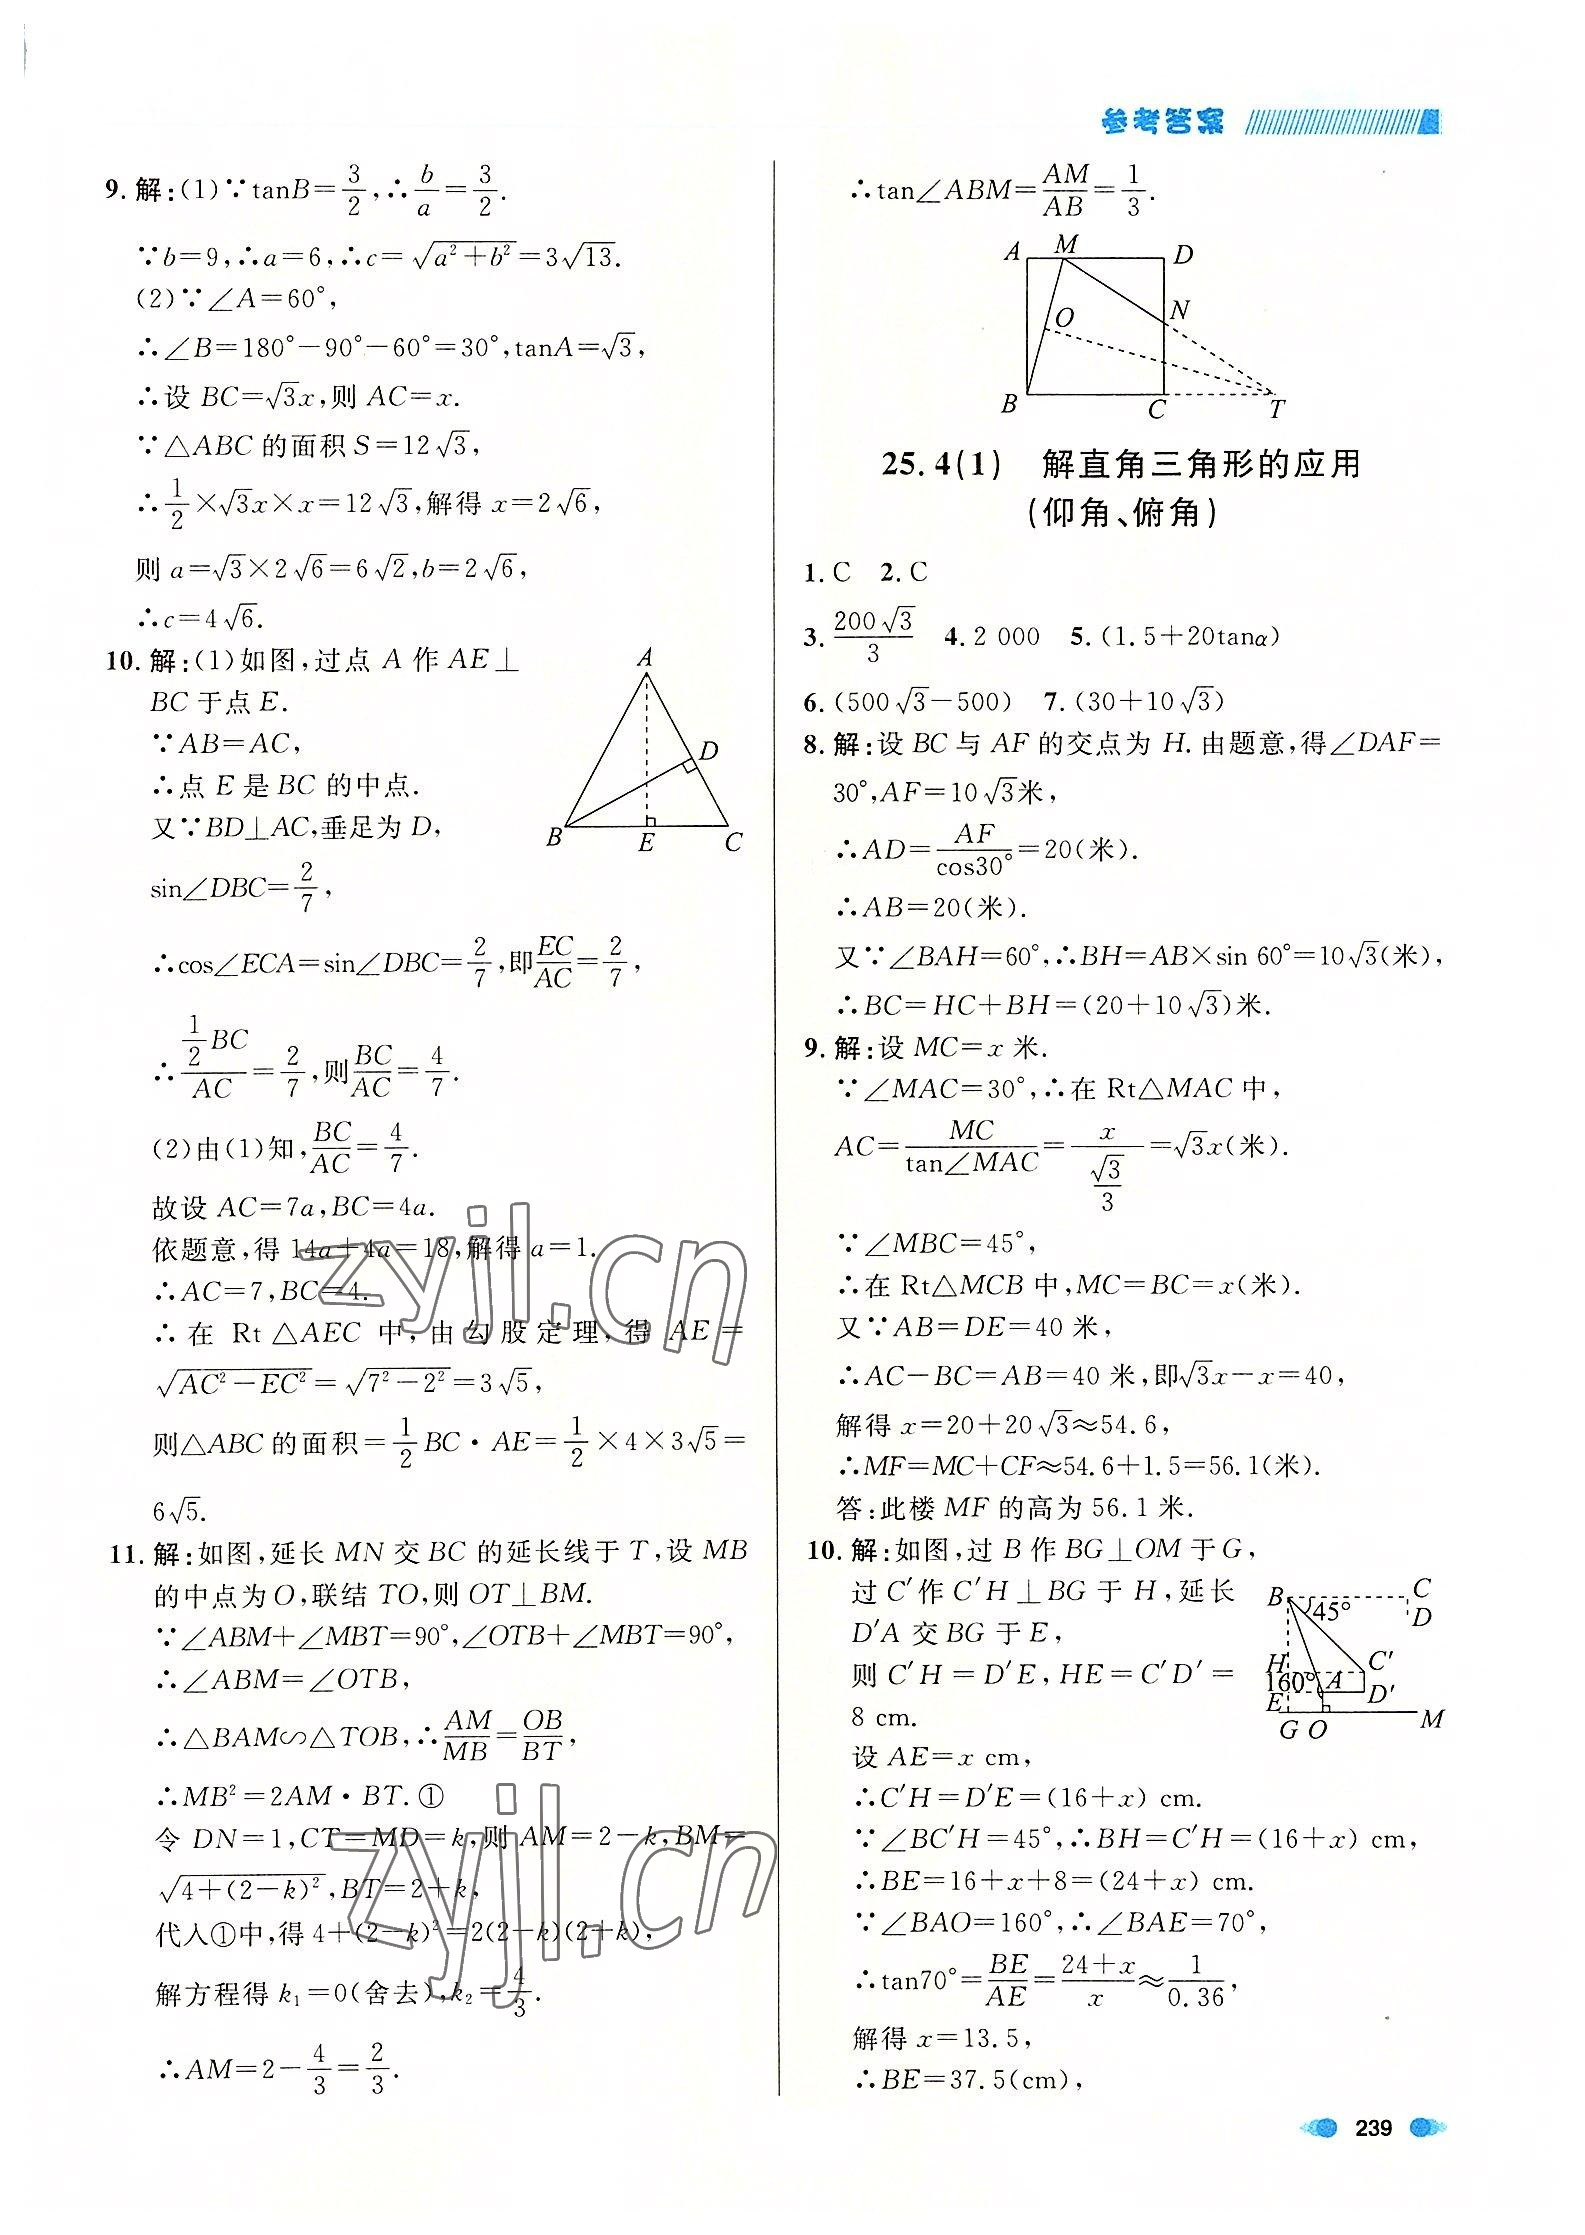 参考答案
9. 解:(1)∵tanB=3/2,∴b/a=3/2.
∵b=9,∴a=6,∴c=√(a²+b²)=3√13.
(2)∵∠A=60°,
∴∠B=180°-90°-60°=30°,tanA=√3,
∴设 BC=√3x,则 AC=x.
∵△ABC 的面积 S=12√3,
∴1/2×√3x×x=12√3,解得 x=2√6,
则 a=√3×2√6=6√2,b=2√6,
∴c=4√6.
10. 解:(1)如图,过点 A 作 AE⊥
BC 于点 E.
∵AB=AC,
∴点 E 是 BC 的中点.
又∵BD⊥AC,垂足为 D,
sin∠DBC=2/7,
A
D
B
E
C
∴cos∠ECA=sin∠DBC=2/7,即EC/AC=2/7,
∴(1/2 BC)/AC=2/7,则BC/AC=4/7.
(2)由(1)知,BC/AC=4/7.
故设 AC=7a,BC=4a.
依题意,得 14a+4a=18,解得 a=1.
∴AC=7,BC=4.
∴在 Rt△AEC 中,由勾股定理,得 AE=
√(AC²-EC²)=√(7²-2²)=3√5,
则△ABC 的面积=1/2 BC·AE=1/2×4×3√5=
6√5.
11. 解:如图,延长 MN 交 BC 的延长线于 T,设 MB
的中点为 O,联结 TO,则 OT⊥BM.
∵∠ABM+∠MBT=90°,∠OTB+∠MBT=90°,
∴∠ABM=∠OTB,
∴△BAM∽△TOB,∴AM/MB=OB/BT,
∴MB²=2AM·BT.①
令 DN=1,CT=MD=k,则 AM=2-k,BM=
√(4+(2-k)²),BT=2+k,
代入①中,得 4+(2-k)²=2(2-k)(2+k),
解方程得 k₁=0(舍去),k₂=4/3.
∴AM=2-4/3=2/3.
∴tan∠ABM=AM/AB=1/3.
A
M
D
O
N
B
C
T
25.4(1) 解直角三角形的应用
(仰角、俯角)
1. C 2. C
3. 200√3/3 4. 2 000 5. (1.5+20tanα)
6. (500√3-500) 7. (30+10√3)
8. 解:设 BC 与 AF 的交点为 H. 由题意,得∠DAF=
30°,AF=10√3米,
∴AD=AF/cos30°=20(米).
∴AB=20(米).
又∵∠BAH=60°,∴BH=AB×sin 60°=10√3(米),
∴BC=HC+BH=(20+10√3)米.
9. 解:设 MC=x 米.
∵∠MAC=30°,∴在 Rt△MAC 中,
AC=MC/tan∠MAC=x/(√3/3)=√3x(米).
∵∠MBC=45°,
∴在 Rt△MCB 中,MC=BC=x(米).
又∵AB=DE=40 米,
∴AC-BC=AB=40 米,即√3x-x=40,
解得 x=20+20√3≈54.6,
∴MF=MC+CF≈54.6+1.5=56.1(米).
答:此楼 MF 的高为 56.1 米.
10. 解:如图,过 B 作 BG⊥OM 于 G,
过 C′作 C′H⊥BG 于 H,延长
D′A 交 BG 于 E,
则 C′H=D′E,HE=C′D′=
8 cm.
B
C
45°
D
H
C′
160°
A
E
D′
G
O
M
设 AE=x cm,
∴C′H=D′E=(16+x) cm.
∵∠BC′H=45°,∴BH=C′H=(16+x) cm,
∴BE=16+x+8=(24+x) cm.
∵∠BAO=160°,∴∠BAE=70°,
∴tan70°=BE/AE=(24+x)/x≈1/0.36,
解得 x=13.5,
∴BE=37.5(cm),
zyjl.cn
zyjl.cn
239